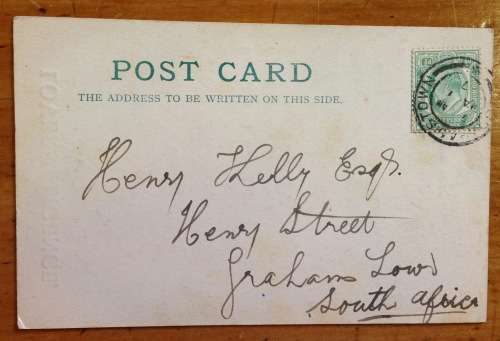 POST CARD
THE ADDRESS TO BE WRITTEN ON THIS SIDE.
Henry Kelly Esq.
Henry Street
Grahams Town
South Africa